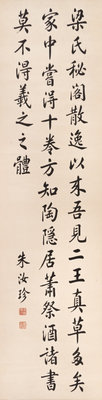 梁氏秘阁散逸以来吾見二王真草多矣
家中嘗得十卷方知陶隱居蕭祭酒諸書
莫不得羲之之體
朱汝珍